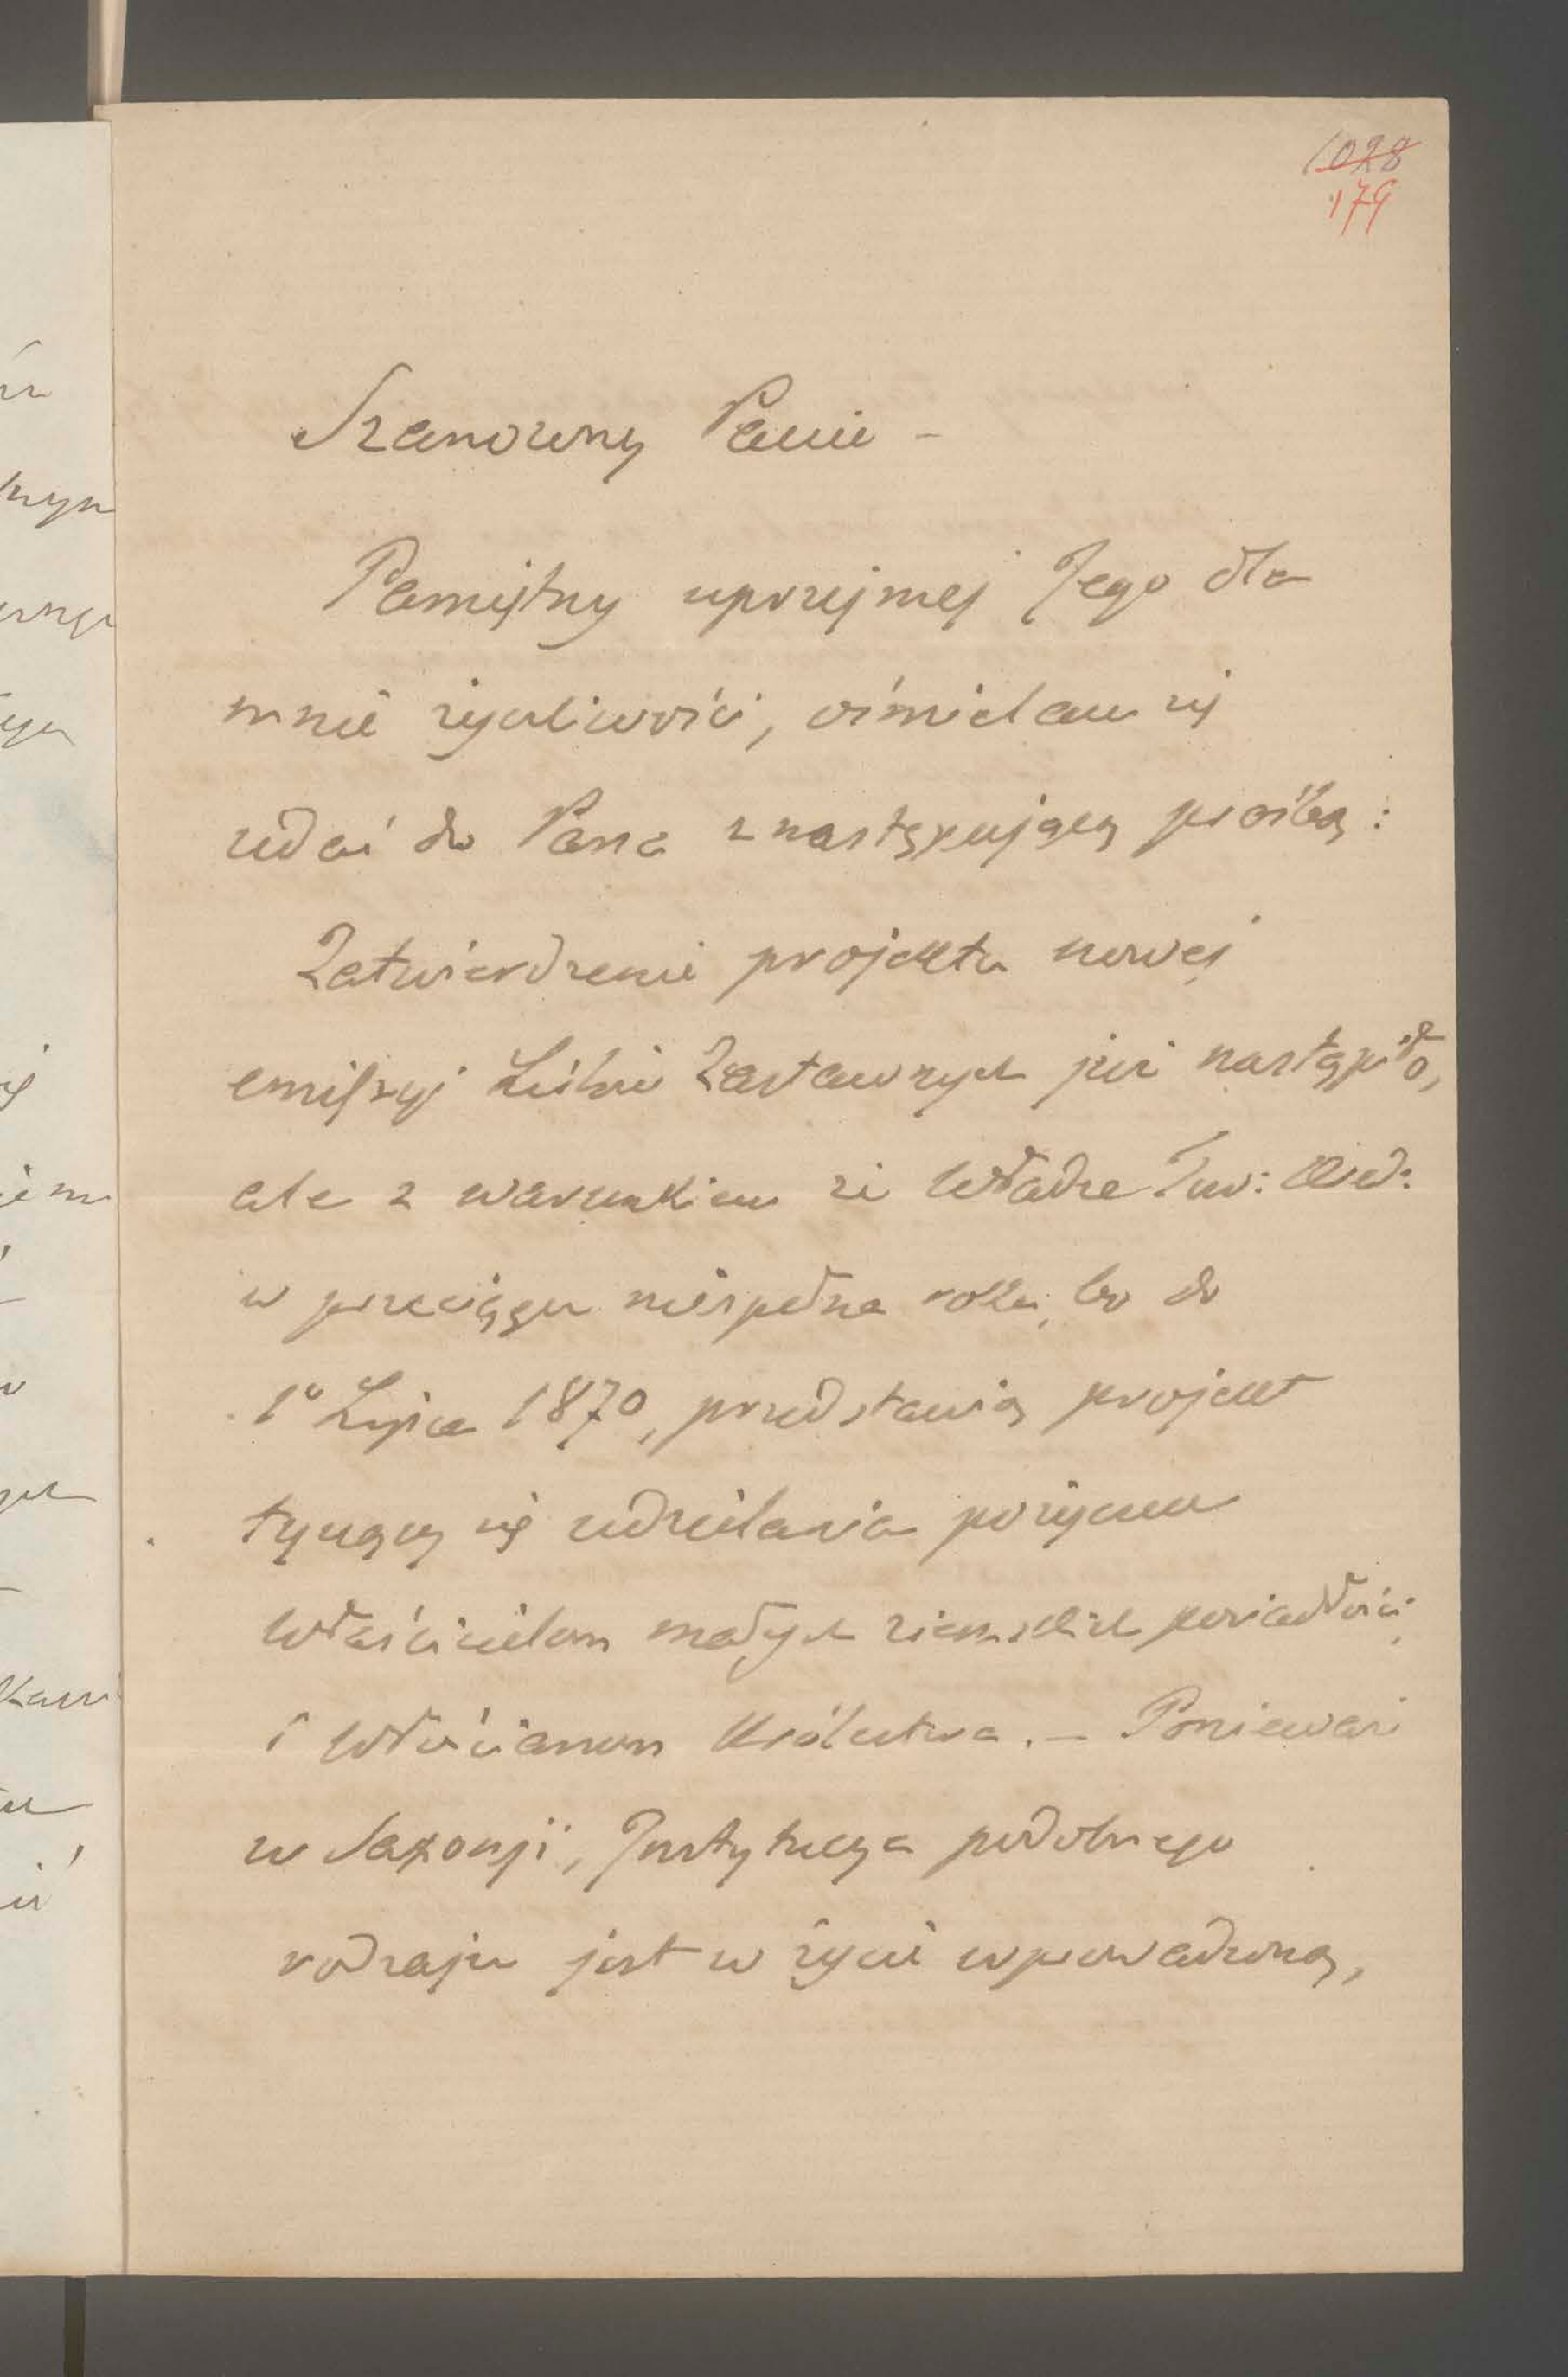 1028
179
Szanowny Panie –
Pamiętny uprzejmej Jego dla
mnie życzliwości, ośmielam się
udać do Pana z następującą prośbą:
Zatwierdzenie projektu nowej
emissyi Listów Zastawnych już nastąpiło,
ale z warunkiem że Władze Tow: Kred:
w przeciągu niespełna roku, bo do
1° Lipca 1870, przedstawią projekt
tyczący się udzielania pożyczek
Właścicielom małych ziemskich posiadłości,
i Włościanom Królestwa. – Ponieważ
w Saxonji, Instytucya podobnego
rodzaju jest w życie wprowadzoną,